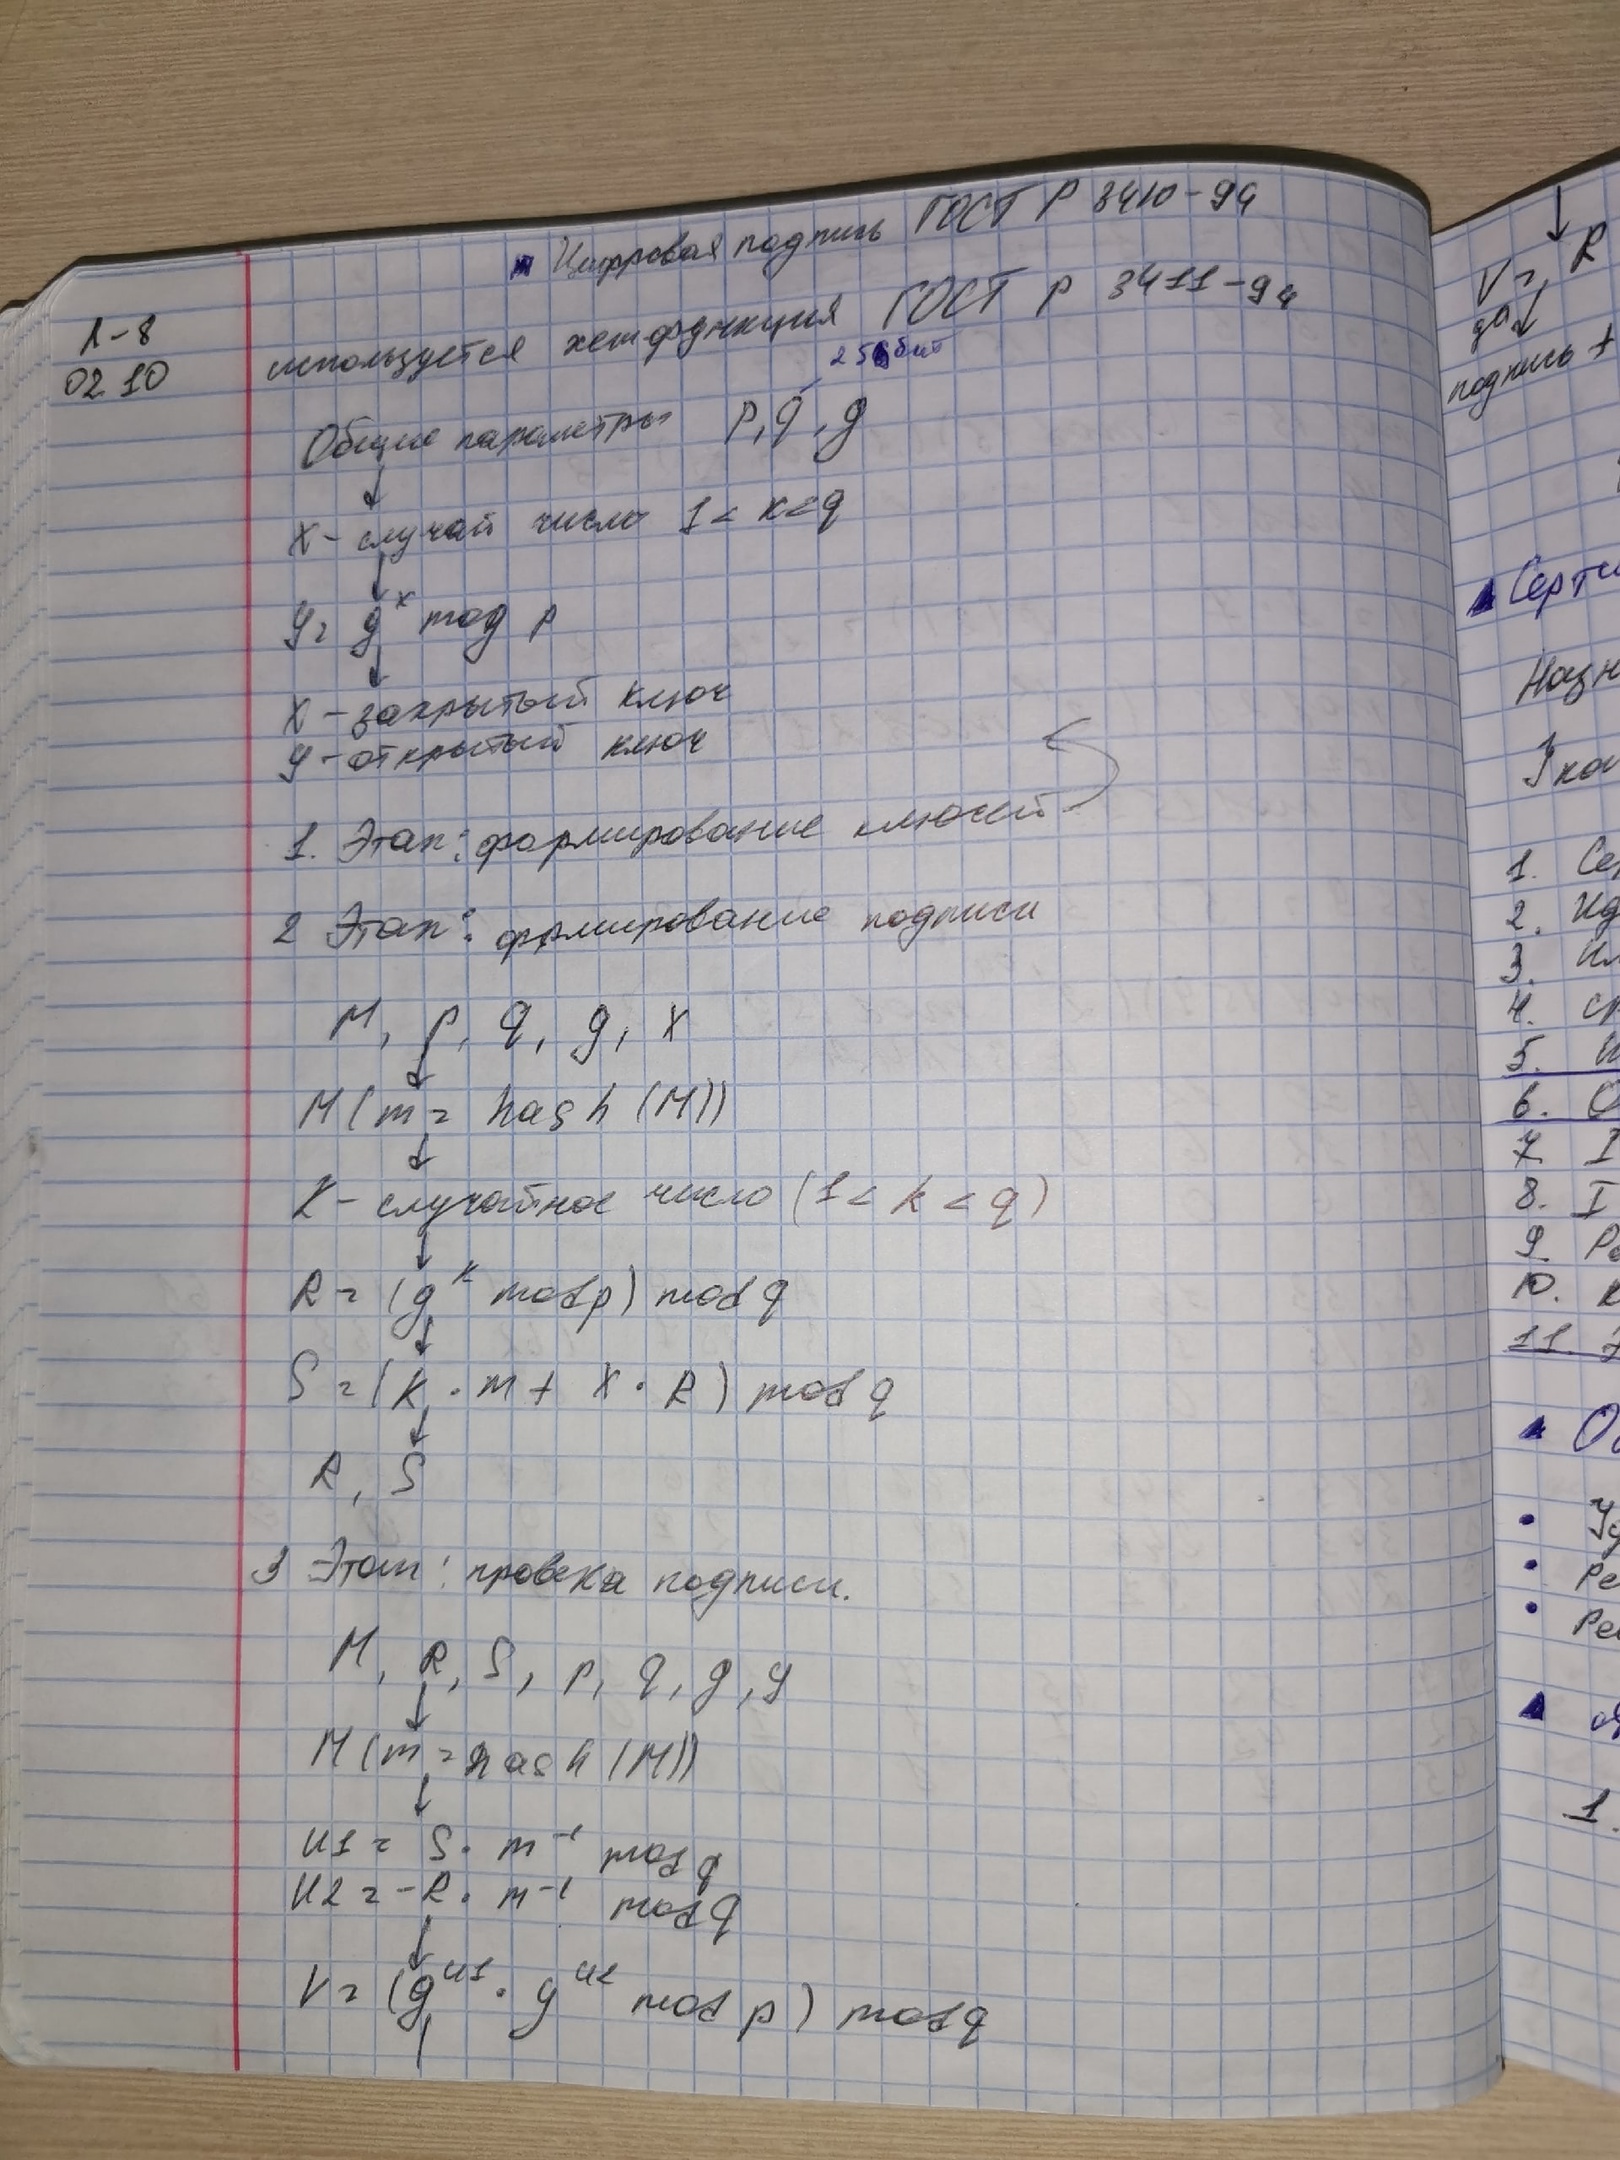 Л-8
02.10
Цифровая подпись ГОСТ Р 3410-94
используется хешфункция ГОСТ Р 3411-94
256бит
Общие параметры p, q, g
X - случай число 1 < x < q
y = g^x mod p
X - закрытый ключ
y - открытый ключ
1. Этап: формирование ключей
2 Этап: формирование подписи
M, p, q, g, x
M (m = hash (M))
K - случайное число (1 < k < q)
R = (g^k mod p) mod q
S = (k · m + x · R) mod q
R, S
3 Этап: провека подписи.
M, R, S, p, q, g, y
M (m = hash (M))
U1 = S · m^-1 mod q
U2 = -R · m^-1 mod q
V = (g^u1 · y^u2 mod p) mod q
V = R
да
подпись +
Серти
Назн
1. Се
2. Ид
3.
4. ср
5. И
6.
7. I
8. I
9. Ро
10. К
11. Э
Об
Уд
Ре
Рее
1.